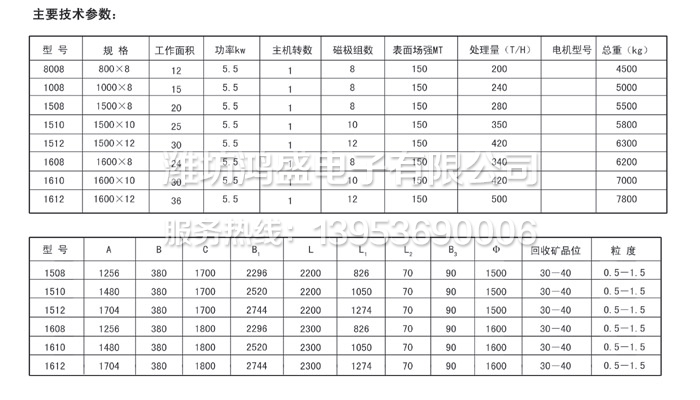 主要技术参数：
型 号 规 格 工作面积 功率kw 主机转数 磁极组数 表面场强MT 处理量（T/H） 电机型号 总重（kg）
8008 800×8 12 5.5 1 8 150 200 4500
1008 1000×8 15 5.5 1 8 150 240 5000
1508 1500×8 20 5.5 1 8 150 280 5500
1510 1500×10 25 5.5 1 10 150 350 5800
1512 1500×12 30 5.5 1 12 150 420 6300
1608 1600×8 24 5.5 1 8 150 340 6200
1610 1600×10 30 5.5 1 10 150 420 7000
1612 1600×12 36 5.5 1 12 150 500 7800
潍坊鸿盛电子有限公司
服务热线：13953690006
型 号 A B C B₁ L L₁ L₂ B₃ Φ 回收矿品位 粒 度
1508 1256 380 1700 2296 2200 826 70 90 1500 30—40 0.5—1.5
1510 1480 380 1700 2520 2200 1050 70 90 1500 30—40 0.5—1.5
1512 1704 380 1700 2744 2200 1274 70 90 1500 30—40 0.5—1.5
1608 1256 380 1800 2296 2300 826 70 90 1600 30—40 0.5—1.5
1610 1480 380 1800 2520 2300 1050 70 90 1600 30—40 0.5—1.5
1612 1704 380 1800 2744 2300 1274 70 90 1600 30—40 0.5—1.5